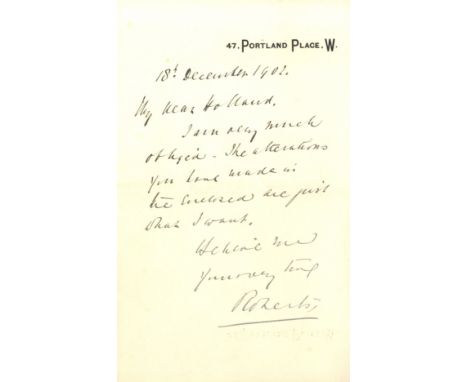 47, PORTLAND PLACE, W.
18th December 1902.
My dear Holland.
I am very much
obliged - The alterations
you have made in
the enclosed are just
what I want.
Believe me
Yours very truly
Roberts